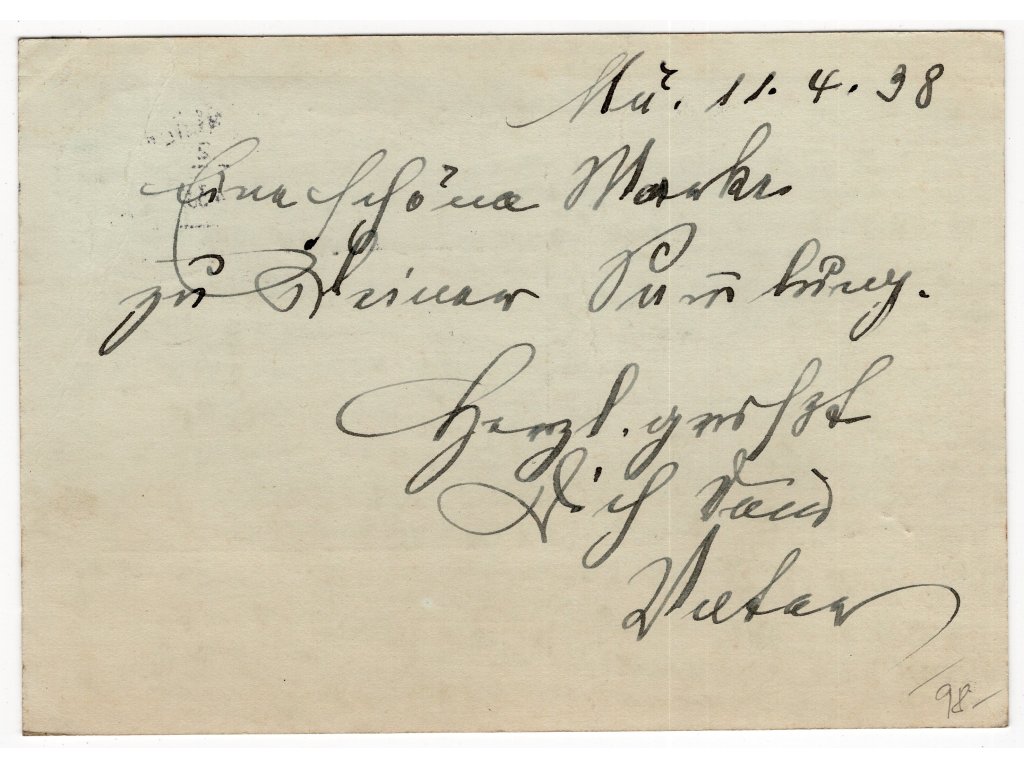 Mü. 11.4.38
Eine schöne Marke
zu Deiner Sam̄lung.
Herzl. grüsst
Dich Dein
Vater
98.-